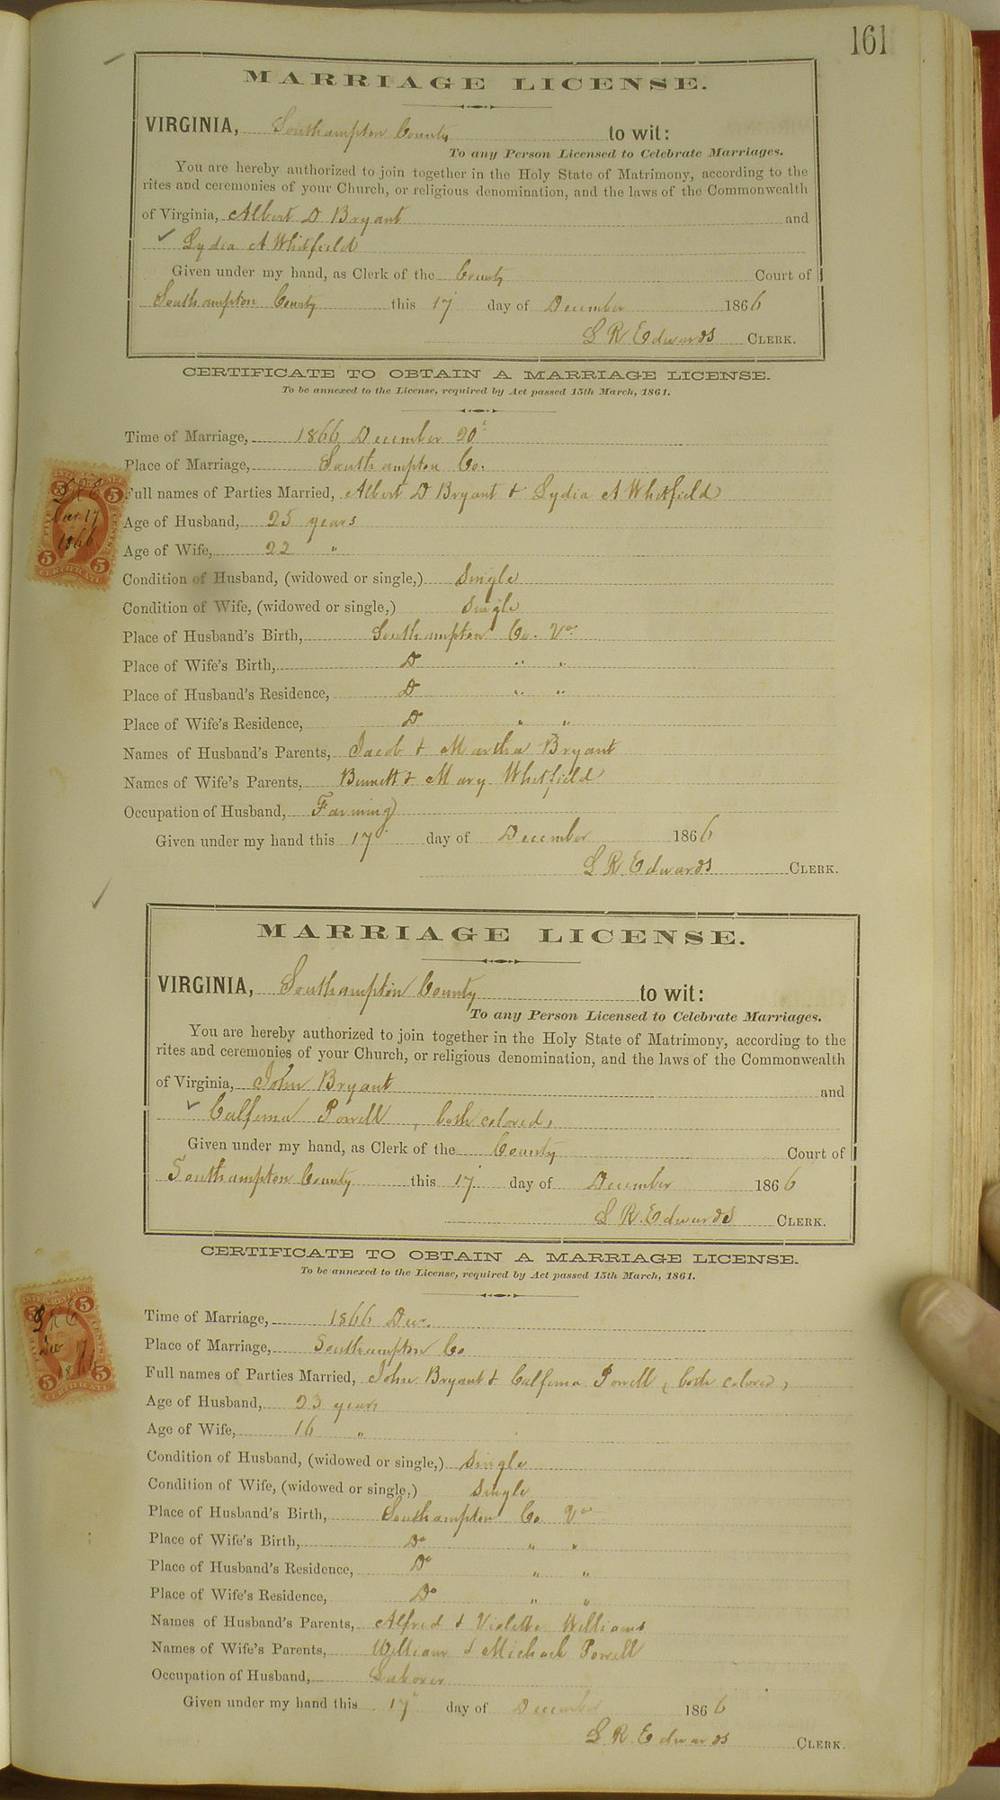 161
MARRIAGE LICENSE.
VIRGINIA, Southampton County to wit:
To any Person Licensed to Celebrate Marriages.
You are hereby authorized to join together in the Holy State of Matrimony, according to the
rites and ceremonies of your Church, or religious denomination, and the laws of the Commonwealth
of Virginia, Albert D Bryant and
✓ Lydia A Whitfield
Given under my hand, as Clerk of the County Court of
Southampton County this 17 day of December 1866
L R Edwards CLERK.
CERTIFICATE TO OBTAIN A MARRIAGE LICENSE.
To be annexed to the License, required by Act passed 15th March, 1861.
Time of Marriage, 1866 December 20t
Place of Marriage, Southampton Co.
Full names of Parties Married, Albert D Bryant & Lydia A Whitfield
Age of Husband, 25 years
Age of Wife, 22 "
Condition of Husband, (widowed or single,) Single
Condition of Wife, (widowed or single,) Single
Place of Husband's Birth, Southampton Co. Va
Place of Wife's Birth, D " "
Place of Husband's Residence, D " "
Place of Wife's Residence, D " "
Names of Husband's Parents, Jacob & Martha Bryant
Names of Wife's Parents, Bennett & Mary Whitfield
Occupation of Husband, Farming
Given under my hand this 17 day of December 1866
L R. Edwards CLERK.
L R E
Dec 17
1866
MARRIAGE LICENSE.
VIRGINIA, Southampton County to wit:
To any Person Licensed to Celebrate Marriages.
You are hereby authorized to join together in the Holy State of Matrimony, according to the
rites and ceremonies of your Church, or religious denomination, and the laws of the Commonwealth
of Virginia, John Bryant and
✓ Calferna Powell, both colored,
Given under my hand, as Clerk of the County Court of
Southampton County this 17 day of December 1866
L R. Edwards CLERK.
CERTIFICATE TO OBTAIN A MARRIAGE LICENSE.
To be annexed to the License, required by Act passed 15th March, 1861.
Time of Marriage, 1866 Dec.
Place of Marriage, Southampton Co
Full names of Parties Married, John Bryant & Calferna Powell (both colored,
Age of Husband, 23 years
Age of Wife, 16 "
Condition of Husband, (widowed or single,) Single
Condition of Wife, (widowed or single,) Single
Place of Husband's Birth, Southampton Co. Va
Place of Wife's Birth, Do " "
Place of Husband's Residence, Do " "
Place of Wife's Residence, Do " "
Names of Husband's Parents, Alfred & Violette Williams
Names of Wife's Parents, William & Michael Powell
Occupation of Husband, Laborer
Given under my hand this 17 day of December 1866
L. R. Edwards CLERK.
L R E
Dec 17